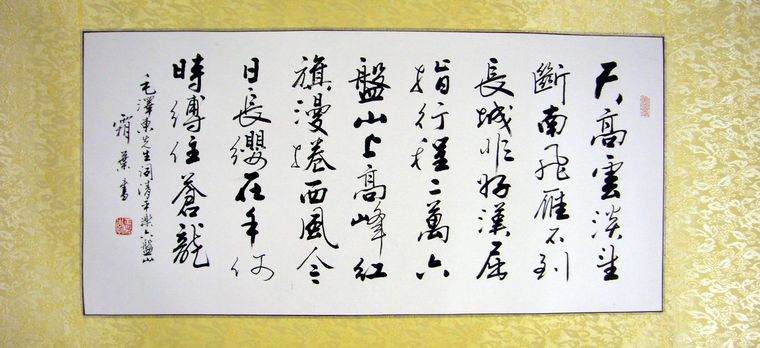 天高雲淡望
斷南飛雁不到
長城非好漢屈
指行程二萬六
盤山上高峰紅
旗漫捲西風今
日長纓在手何
時縛住蒼龍
毛澤東先生词清平樂六盤山
霜葉書